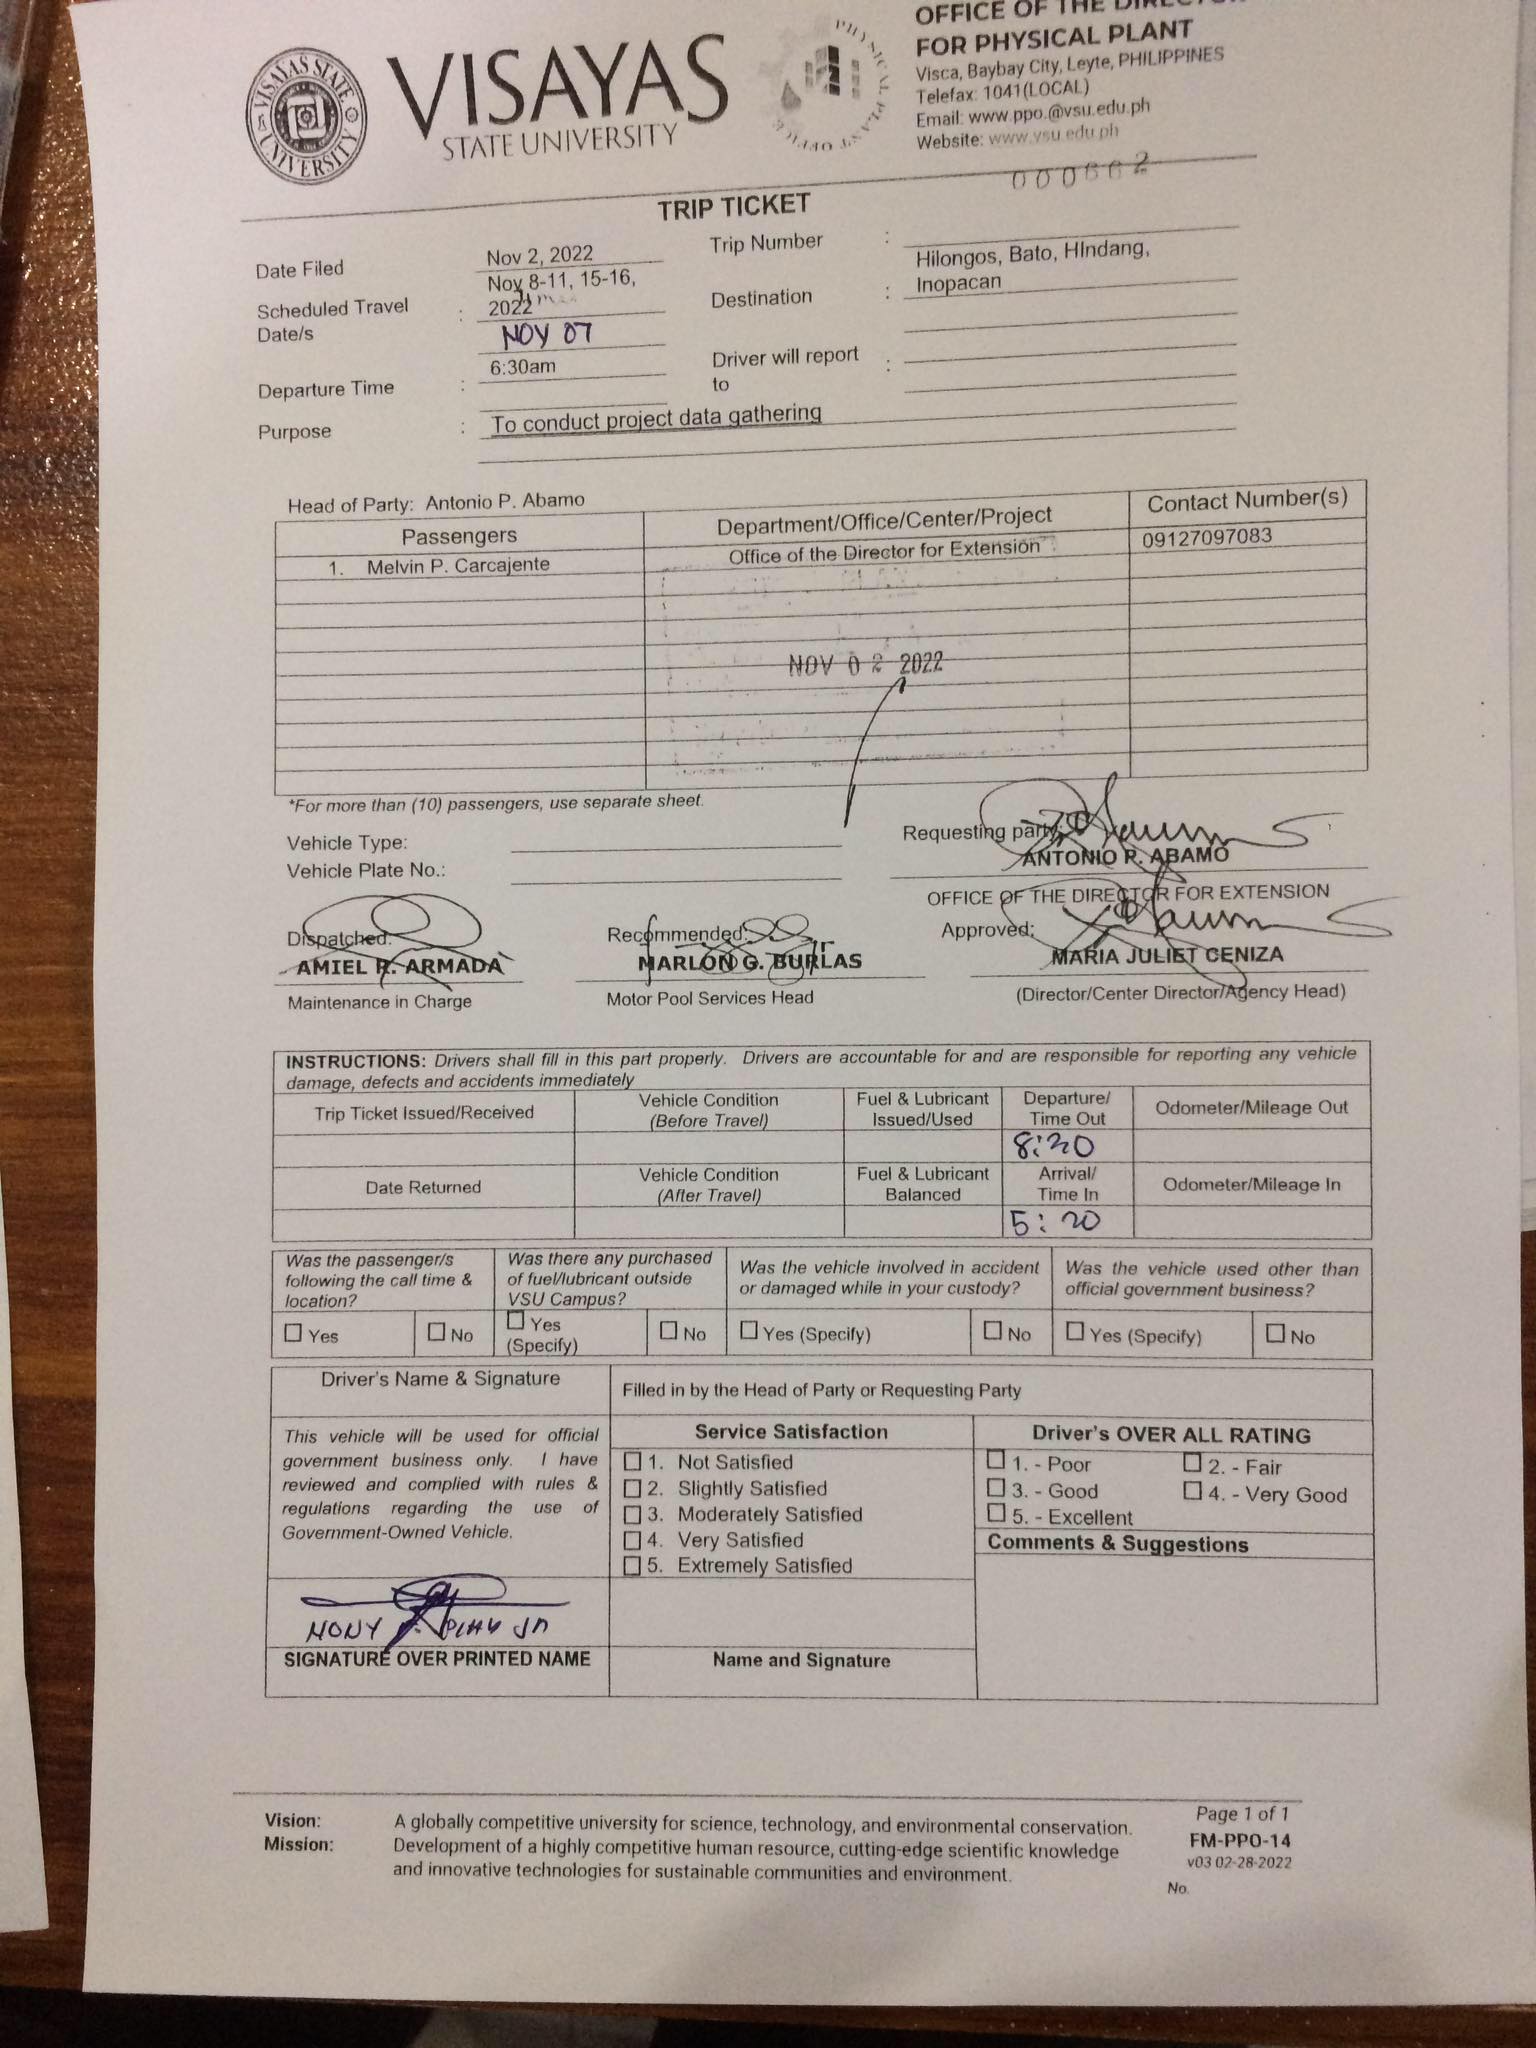 VISAYAS STATE UNIVERSITY
VISAYAS
STATE UNIVERSITY
PHYSICAL PLANT OFFICE
OFFICE OF THE
FOR PHYSICAL PLANT
Visca, Baybay City, Leyte, PHILIPPINES
Telefax: 1041(LOCAL)
Email: www.ppo.@vsu.edu.ph
Website: www.vsu.edu.ph
TRIP TICKET
Date Filed Nov 2, 2022
Trip Number :
Scheduled Travel Date/s : Nov 8-11, 15-16, 2022
NOV 07
Destination : Hilongos, Bato, HIndang, Inopacan
Departure Time : 6:30am
Driver will report to :
Purpose : To conduct project data gathering
Head of Party: Antonio P. Abamo
Passengers Department/Office/Center/Project Contact Number(s)
1. Melvin P. Carcajente Office of the Director for Extension 09127097083
NOV 02 2022
*For more than (10) passengers, use separate sheet.
Vehicle Type:
Vehicle Plate No.:
Requesting party:
ANTONIO P. ABAMO
OFFICE OF THE DIRECTOR FOR EXTENSION
Dispatched: Recommended: Approved:
AMIEL R. ARMADA MARLON G. BURLAS MARIA JULIET CENIZA
Maintenance in Charge Motor Pool Services Head (Director/Center Director/Agency Head)
INSTRUCTIONS: Drivers shall fill in this part properly. Drivers are accountable for and are responsible for reporting any vehicle
damage, defects and accidents immediately
Trip Ticket Issued/Received Vehicle Condition (Before Travel) Fuel & Lubricant Issued/Used Departure/ Time Out Odometer/Mileage Out
8:20
Date Returned Vehicle Condition (After Travel) Fuel & Lubricant Balanced Arrival/ Time In Odometer/Mileage In
5:20
Was the passenger/s following the call time & location?
Was there any purchased of fuel/lubricant outside VSU Campus?
Was the vehicle involved in accident or damaged while in your custody?
Was the vehicle used other than official government business?
Yes No Yes (Specify) No Yes (Specify) No Yes (Specify) No
Driver's Name & Signature
Filled in by the Head of Party or Requesting Party
This vehicle will be used for official
government business only. I have
reviewed and complied with rules &
regulations regarding the use of
Government-Owned Vehicle.
Service Satisfaction
1. Not Satisfied
2. Slightly Satisfied
3. Moderately Satisfied
4. Very Satisfied
5. Extremely Satisfied
Driver's OVER ALL RATING
1. - Poor 2. - Fair
3. - Good 4. - Very Good
5. - Excellent
Comments & Suggestions
SIGNATURE OVER PRINTED NAME
Name and Signature
Vision: A globally competitive university for science, technology, and environmental conservation.
Mission: Development of a highly competitive human resource, cutting-edge scientific knowledge
and innovative technologies for sustainable communities and environment.
Page 1 of 1
FM-PPO-14
v03 02-28-2022
No.